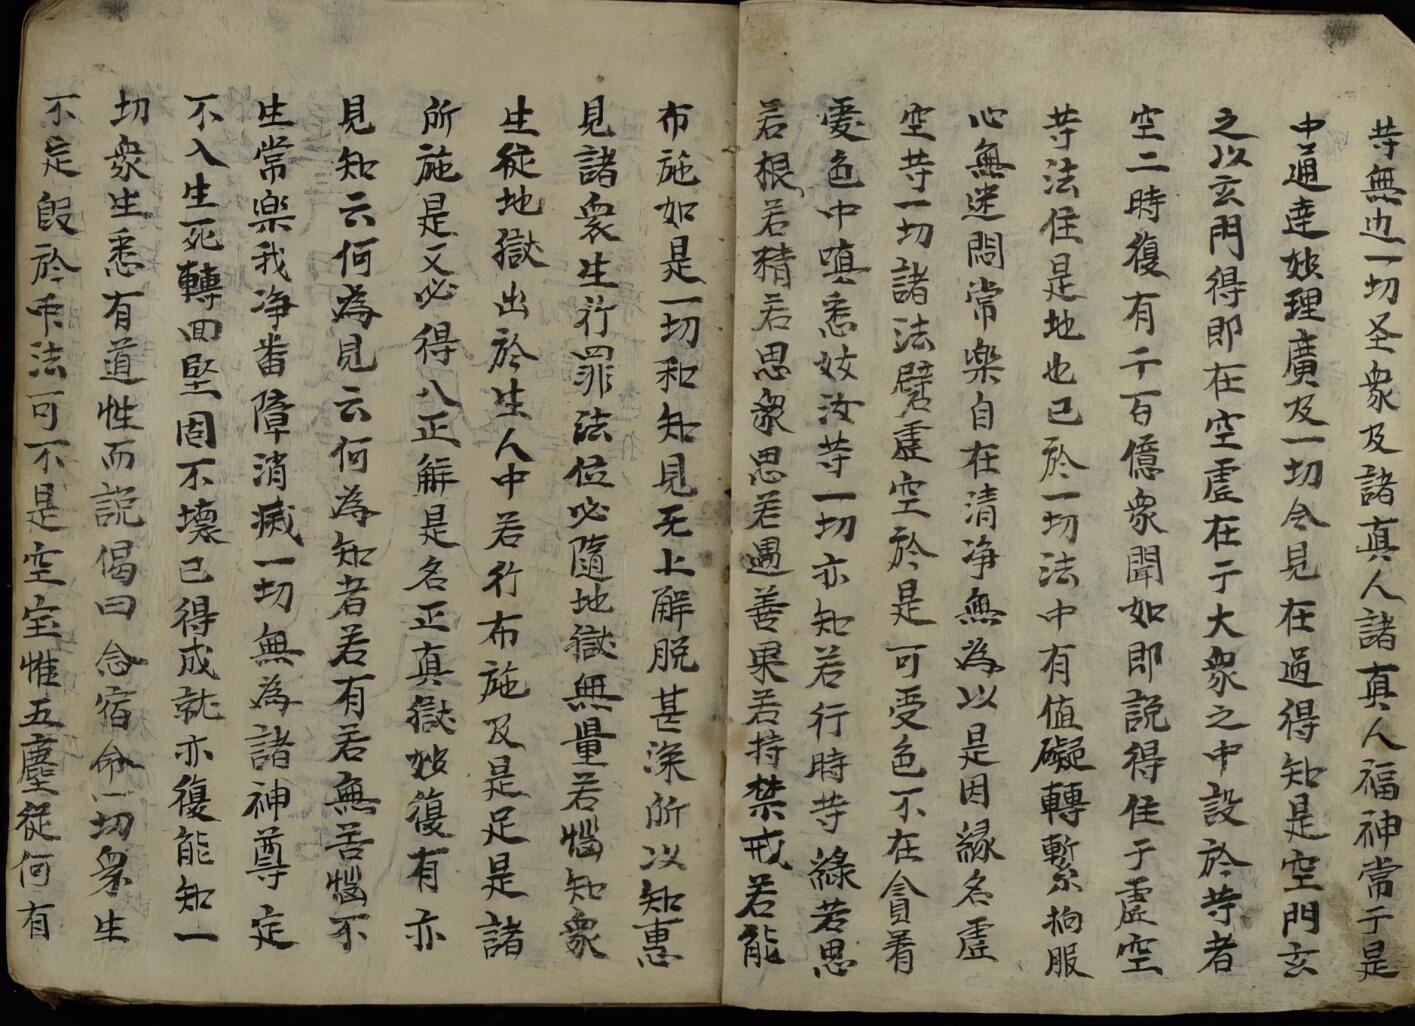 䒭無边一切圣衆及諸真人諸真人福神常于是
中通達妙理廣及一切令見在過得知是空門玄
之以玄門得即在空虛在于大衆之中設於䒭者
空二時復有千百億衆聞如即說得住于虛空
䒭法住是地也已於一切法中有值礙轉繫拘服
心無迷悶常樂自在清净無為以是因緣名虛
空䒭一切諸法譬虛空於是可受色不在貪着
愛色中嗔恚妓汝䒭一切亦知若行時䒭緣若思
若根若精若思衆思若遇善果若持禁戒若能
布施如是一切和知見无上解脱甚深所以知惠
見諸衆生行罪法位必隨地獄無量苦惱知衆
生從地獄出於生人中若行布施及是足是諸
所施是又必得八正解是名正真獄妙復有亦
見知云何為見云何為知者若有若無苦惱不
生常樂我净番障消滅一切無為諸神尊定
不入生死轉回堅固不壞已得成就亦復能知一
切衆生悉有道性而説偈曰念宿命一切衆生
不定叚於法可不是空室惟五塵從何有